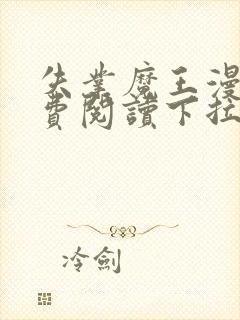 失業魔王漫
費閱讀下拉
冷劍